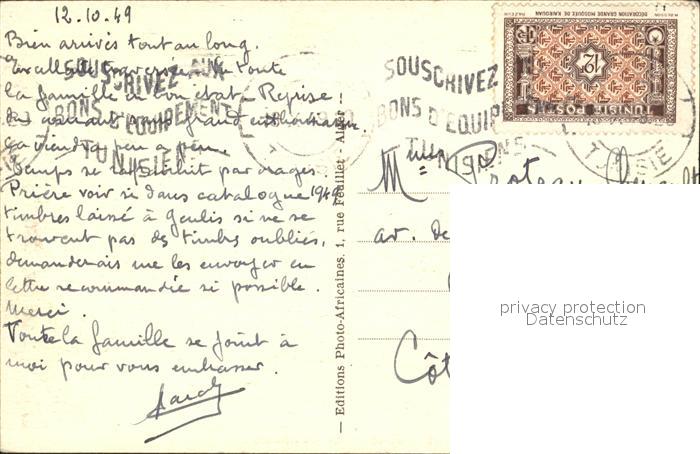 12.10.49
Bien arrivés tout au long.
traversée toute
la famille en bon état. Reprise
sans grand enthousiasme
ça viendra peu à peu.
Temps se rafraichit par orages.
Prière voir si dans catalogue 1949
timbres laissé à se
trouvent pas des timbres oubliés,
demanderais me les envoyer en
lettre recommandée si possible.
Merci.
Toute la famille se joint à
moi pour vous embrasser.
SOUSCRIVEZ AUX
BONS D'EQUIPEMENT
TUNISIENS
SOUSCRIVEZ
BONS D'EQUIP
TUNISIENS
— Editions Photo-Africaines, 1, rue Feuillet - Alger
DECORATION GRANDE MOSQUÉE DE KAIROUAN
12F
TUNISIE POSTES
TUNISIE
M
av. de
Côt
privacy protection
Datenschutz